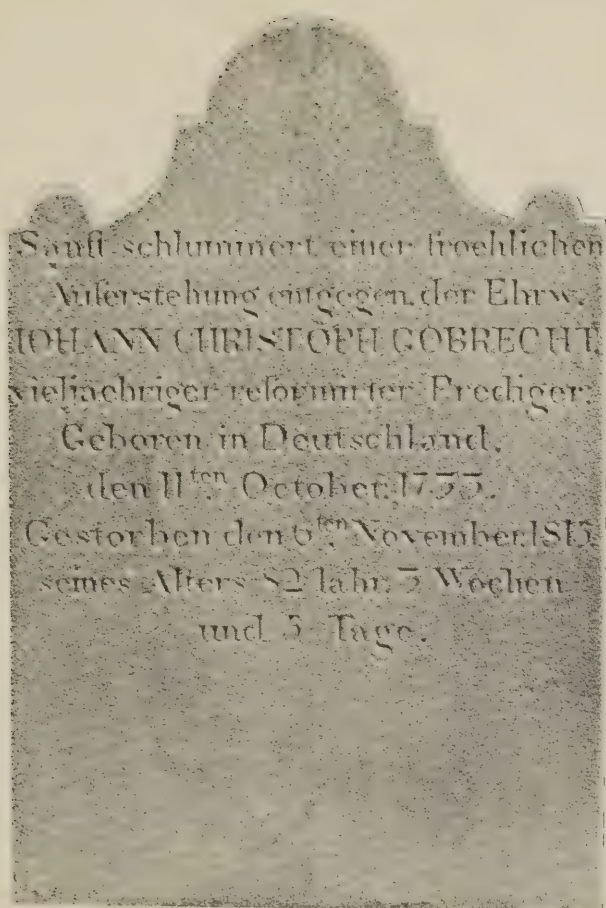 Sanft schlummert einer froehlichen
Auferstehung entgegen, der Ehrw.
IOHANN CHRISTOPH GOBRECHT,
vieljaehriger reformirter Prediger.
Geboren in Deutschland,
den 11ten October, 1733.
Gestorben den 6ten November, 1815
seines Alters 82 Iahr. 3 Wochen
und 5 Tage.